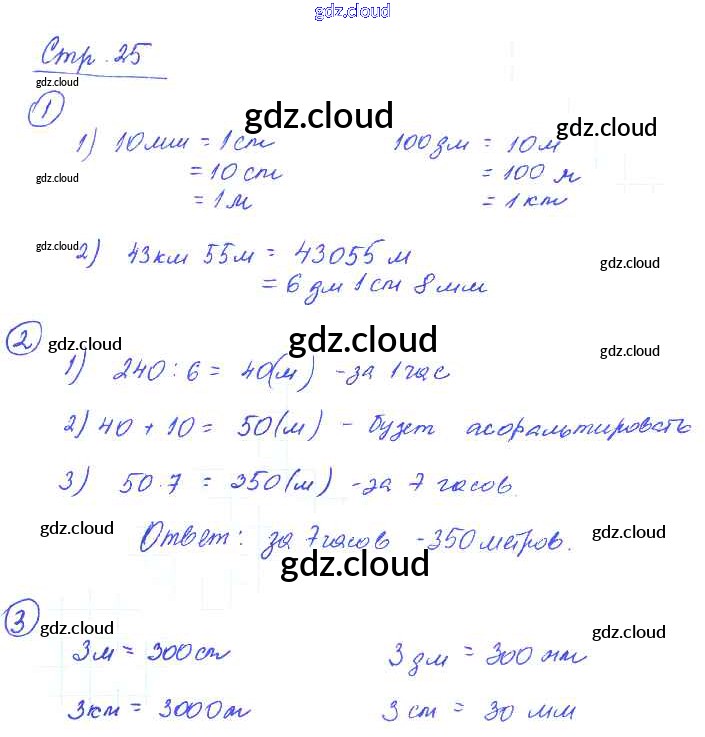 gdz.cloud
Стр. 25
gdz.cloud
1
gdz.cloud
gdz.cloud
1) 10мм = 1см 100дм = 10м
gdz.cloud
= 10 см = 100 м
= 1м = 1км
gdz.cloud
2) 43км 55м = 43055 м
gdz.cloud
= 6 дм 1 см 8 мм
2 gdz.cloud gdz.cloud gdz.cloud
1) 240 : 6 = 40(м) - за 1 час
2) 40 + 10 = 50(м) - будет асфальтировать
3) 50 · 7 = 350(м) - за 7 часов.
gdz.cloud gdz.cloud
Ответ: за 7 часов - 350 метров.
gdz.cloud
3 gdz.cloud gdz.cloud
3м = 300см 3 дм = 300 мм
3км = 3000м 3 см = 30 мм